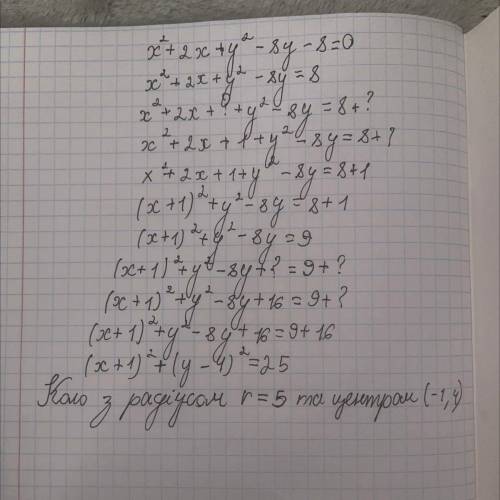 x² + 2x + y² - 8y - 8 = 0
x² + 2x + y² - 8y = 8
x² + 2x + ? + y² - 8y = 8 + ?
x² + 2x + 1 + y² - 8y = 8 + ?
x² + 2x + 1 + y² - 8y = 8 + 1
(x + 1)² + y² - 8y = 8 + 1
(x + 1)² + y² - 8y = 9
(x + 1)² + y² - 8y + ? = 9 + ?
(x + 1)² + y² - 8y + 16 = 9 + ?
(x + 1)² + y² - 8y + 16 = 9 + 16
(x + 1)² + (y - 4)² = 25
Коло з радіусом r = 5 та центром (-1, 4)